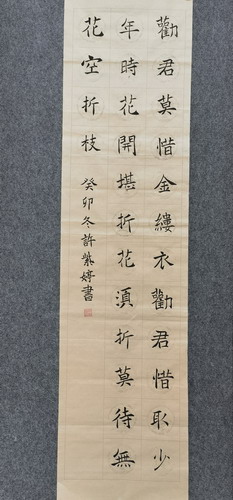 勸君莫惜金縷衣勸君惜取少
年時花開堪折花湏折莫待無
花空折枝
癸卯冬許紫婷書